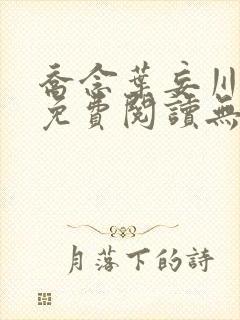 喬念葉妄川
免費閱讀無
月落下的詩